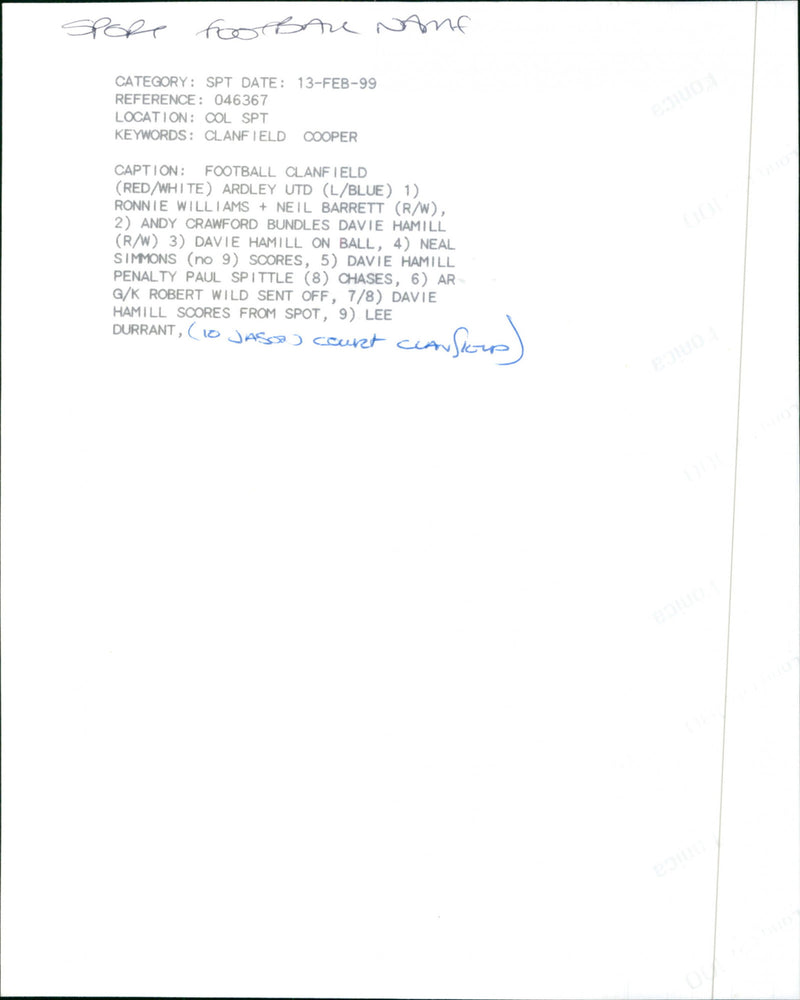 SPORT FOOTBALL NAME
CATEGORY: SPT DATE: 13-FEB-99
REFERENCE: 046367
LOCATION: COL SPT
KEYWORDS: CLANFIELD COOPER
CAPTION: FOOTBALL CLANFIELD
(RED/WHITE) ARDLEY UTD (L/BLUE) 1)
RONNIE WILLIAMS + NEIL BARRETT (R/W),
2) ANDY CRAWFORD BUNDLES DAVIE HAMILL
(R/W) 3) DAVIE HAMILL ON BALL, 4) NEAL
SIMMONS (no 9) SCORES, 5) DAVIE HAMILL
PENALTY PAUL SPITTLE (8) CHASES, 6) AR
G/K ROBERT WILD SENT OFF, 7/8) DAVIE
HAMILL SCORES FROM SPOT, 9) LEE
DURRANT, (10 COURT CLANFIELD)
Konica
Konica
Konica
Konica